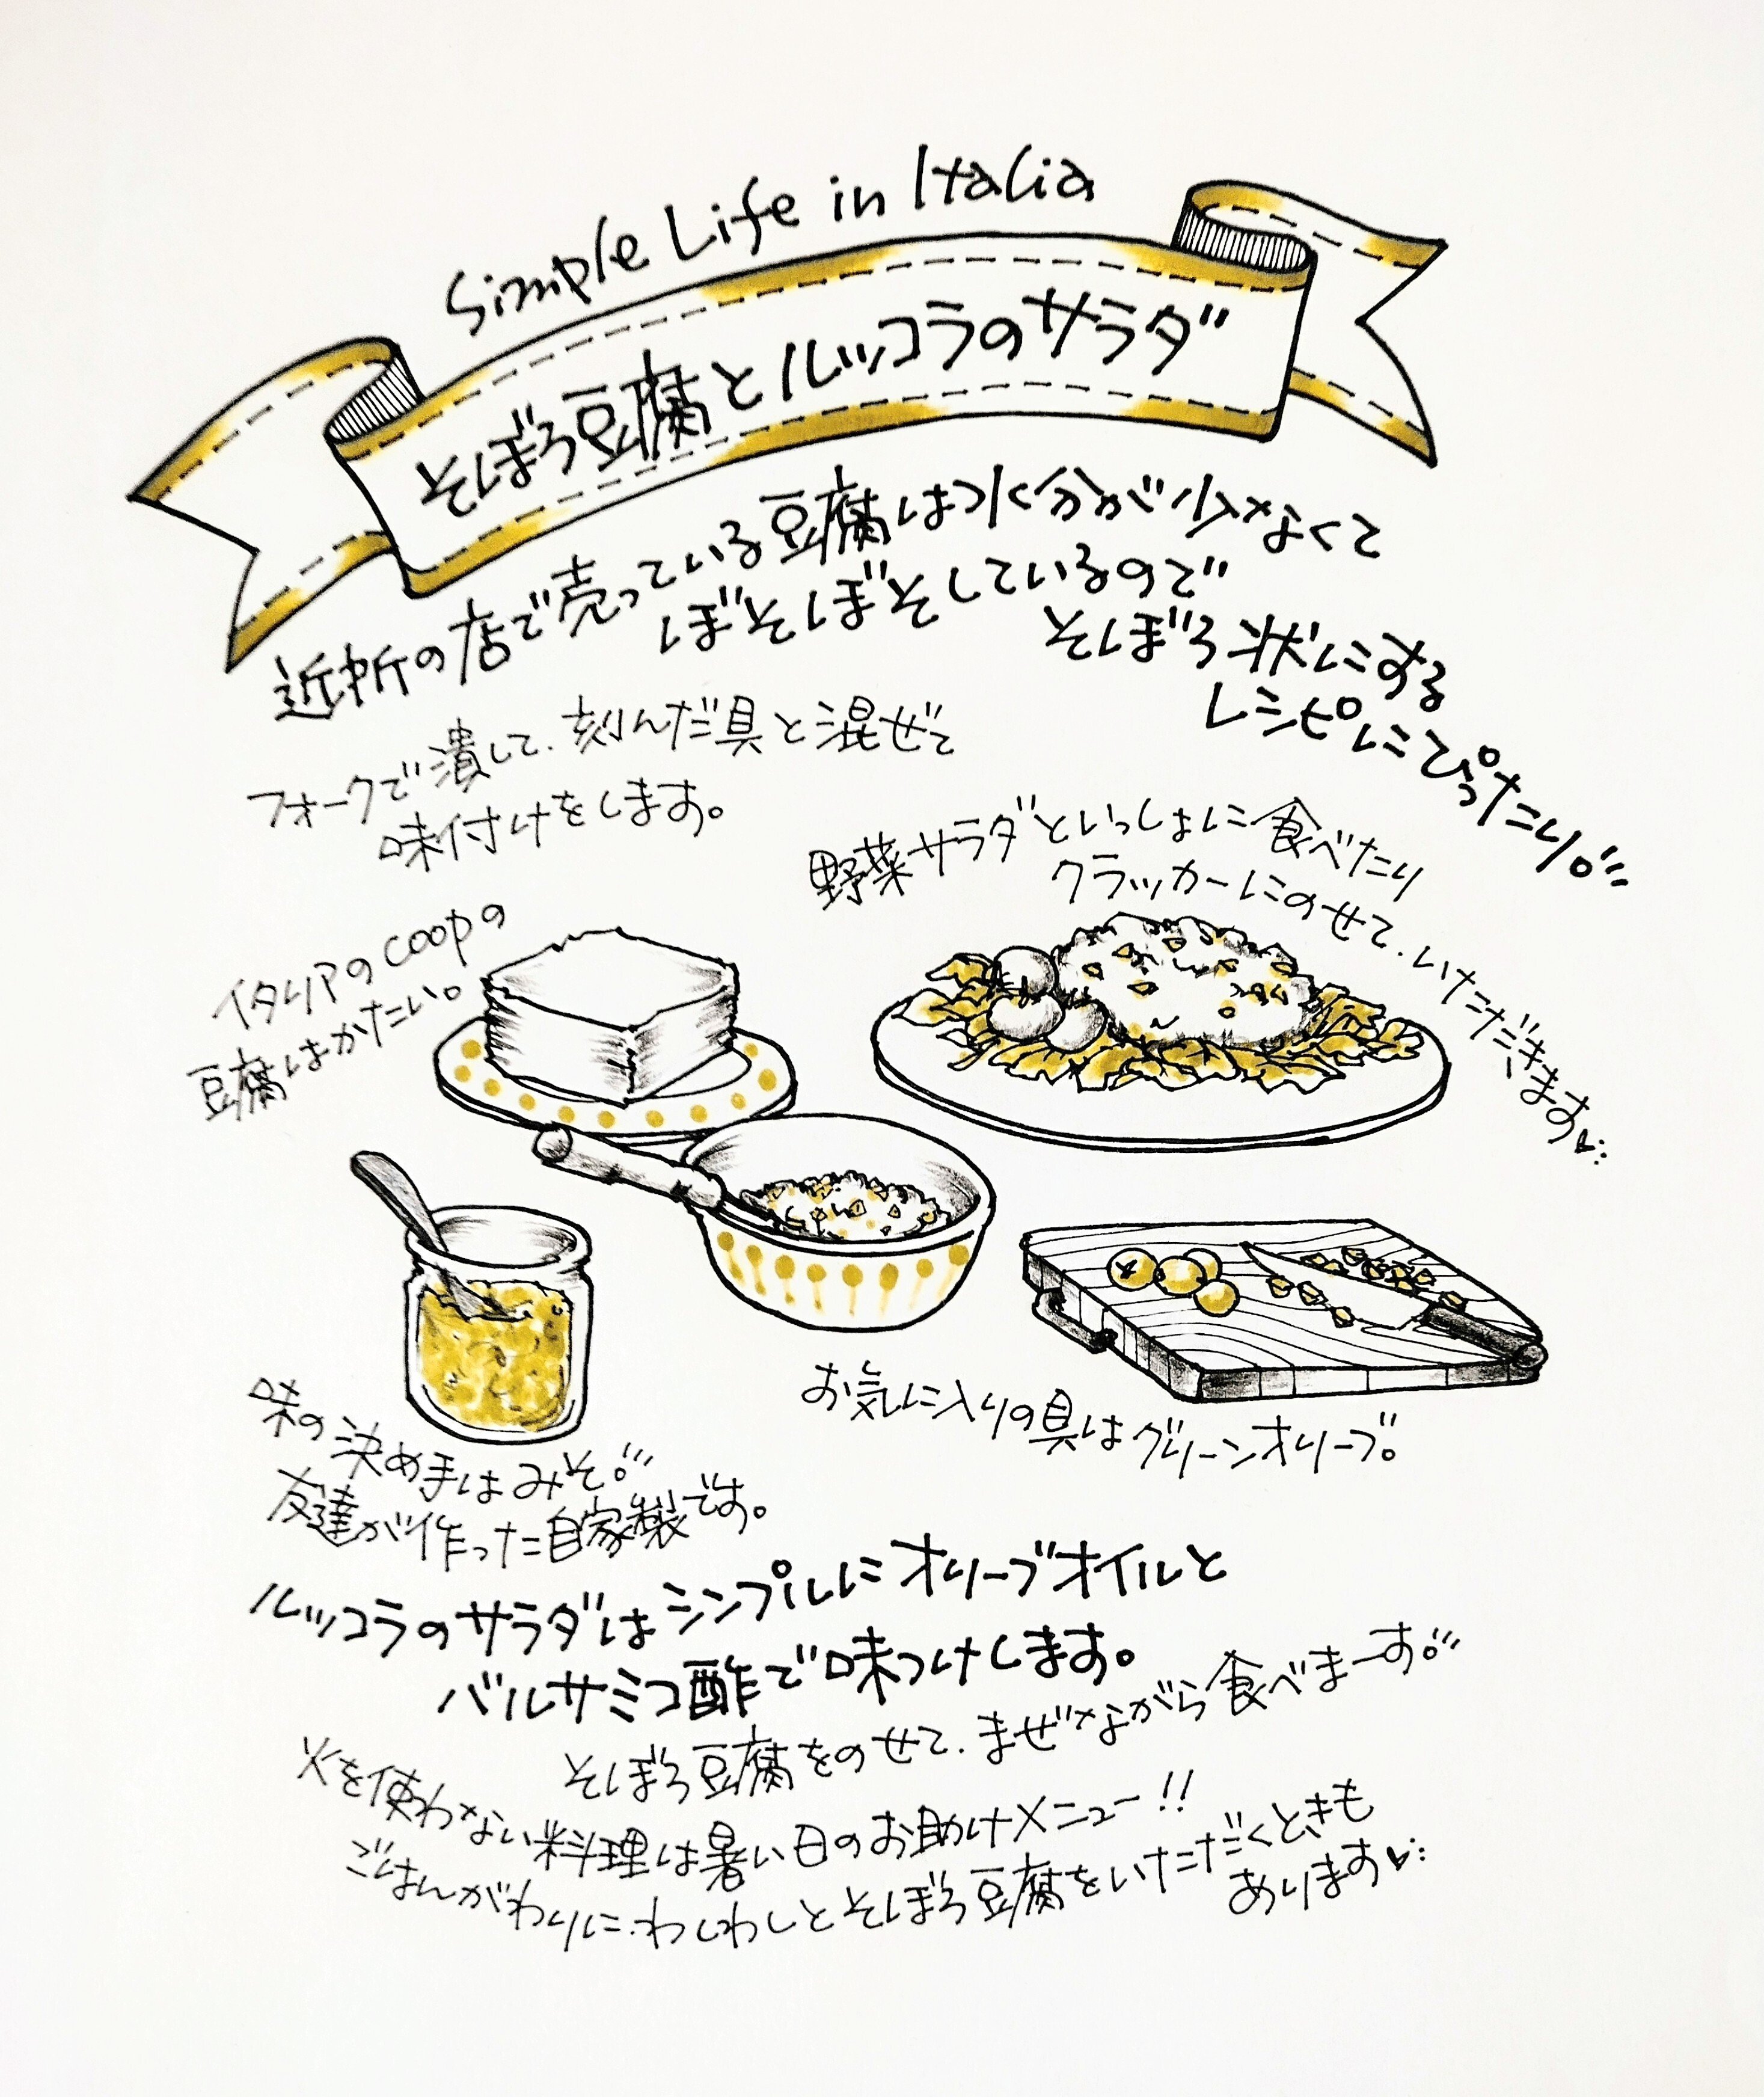 Simple Life in Italia
そぼろ豆腐とルッコラのサラダ
近所の店で売っている豆腐は水分が少なくて
ぼそぼそしているので
そぼろ状にする
レシピにぴったり。
フォークで潰して、刻んだ具と混ぜて
味付けをします。
野菜サラダといっしょに食べたり
クラッカーにのせて、いただきます♥
イタリアのcoopの
豆腐はかたい。
味の決め手はみそ。
友達が作った自家製です。
お気に入りの具はグリーンオリーブ。
ルッコラのサラダはシンプルにオリーブオイルと
バルサミコ酢で味つけします。
そぼろ豆腐をのせて、まぜながら食べまーす。
火を使わない料理は暑い日のお助けメニュー!!
ごはんがわりに、わしわしとそぼろ豆腐をいただくときも
あります♥